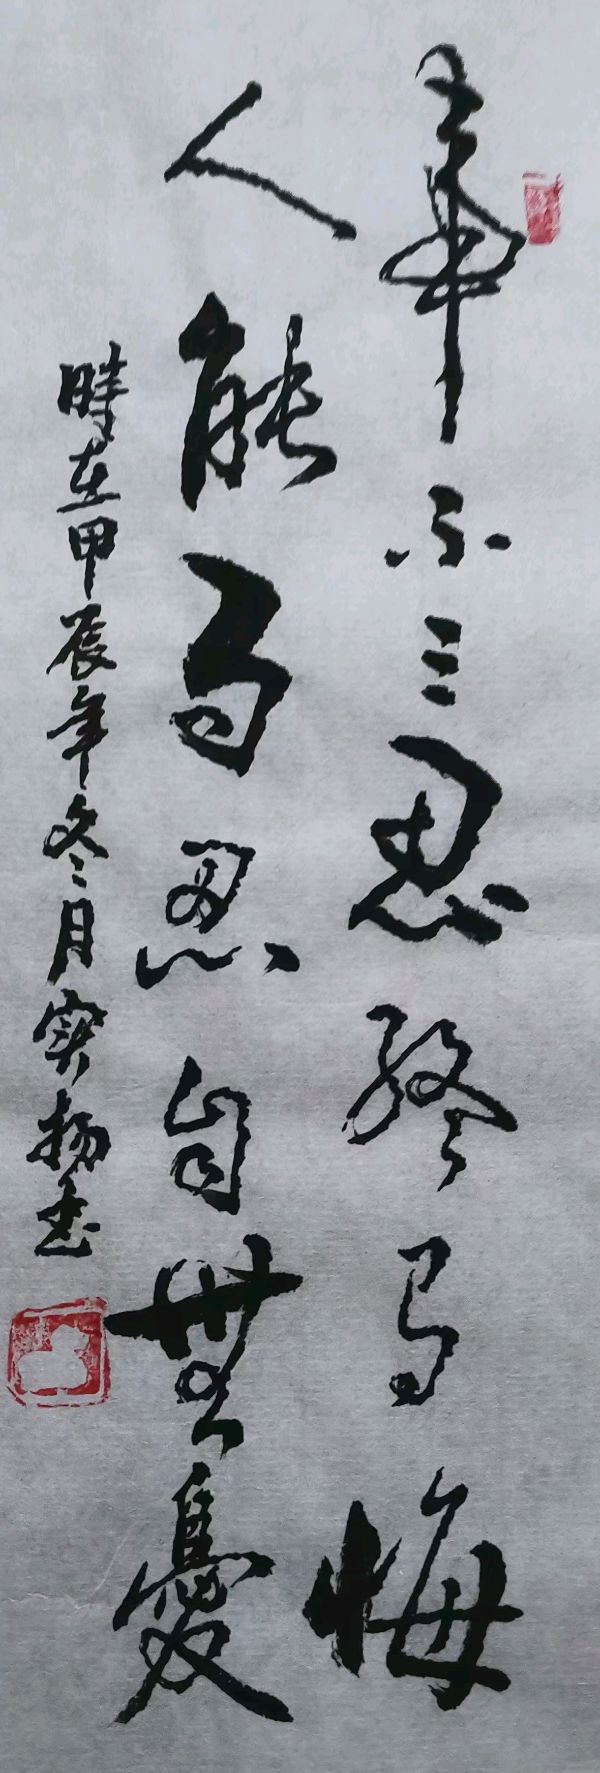 事不三思終有悔
人能百忍自無憂
時在甲辰年冬月实扬书